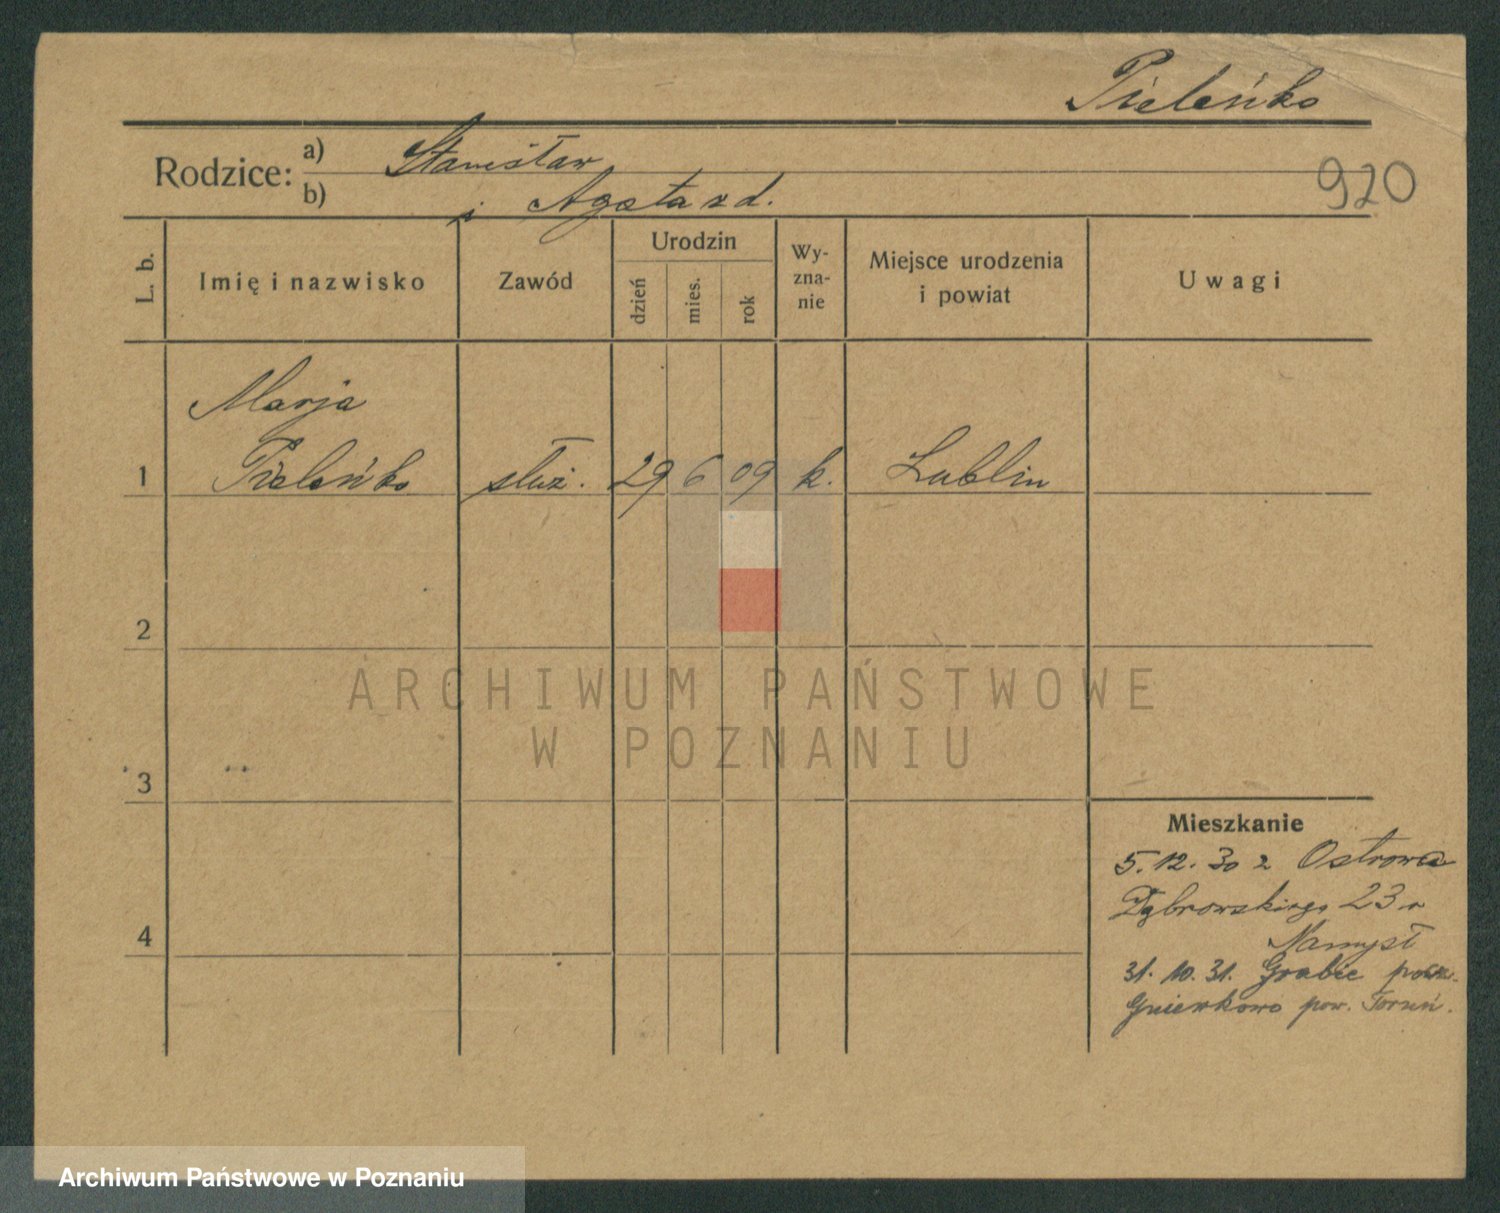 Pieleńko
Rodzice: a) Stanisław
b) i Agata z d.
920
L. b.
Imię i nazwisko
Zawód
Urodzin
dzień
mies.
rok
Wy-
zna-
nie
Miejsce urodzenia
i powiat
Uwagi
Marja
1 Pieleńko służ. 29 6 09 k. Lublin
2
ARCHIWUM PAŃSTWOWE
W POZNANIU
3
Mieszkanie
5. 12. 30 z Ostrowa
Dąbrowskiego 23
4
Namysł
31. 10. 31. Grabie
Gniewkowo pow. Toruń.
Archiwum Państwowe w Poznaniu